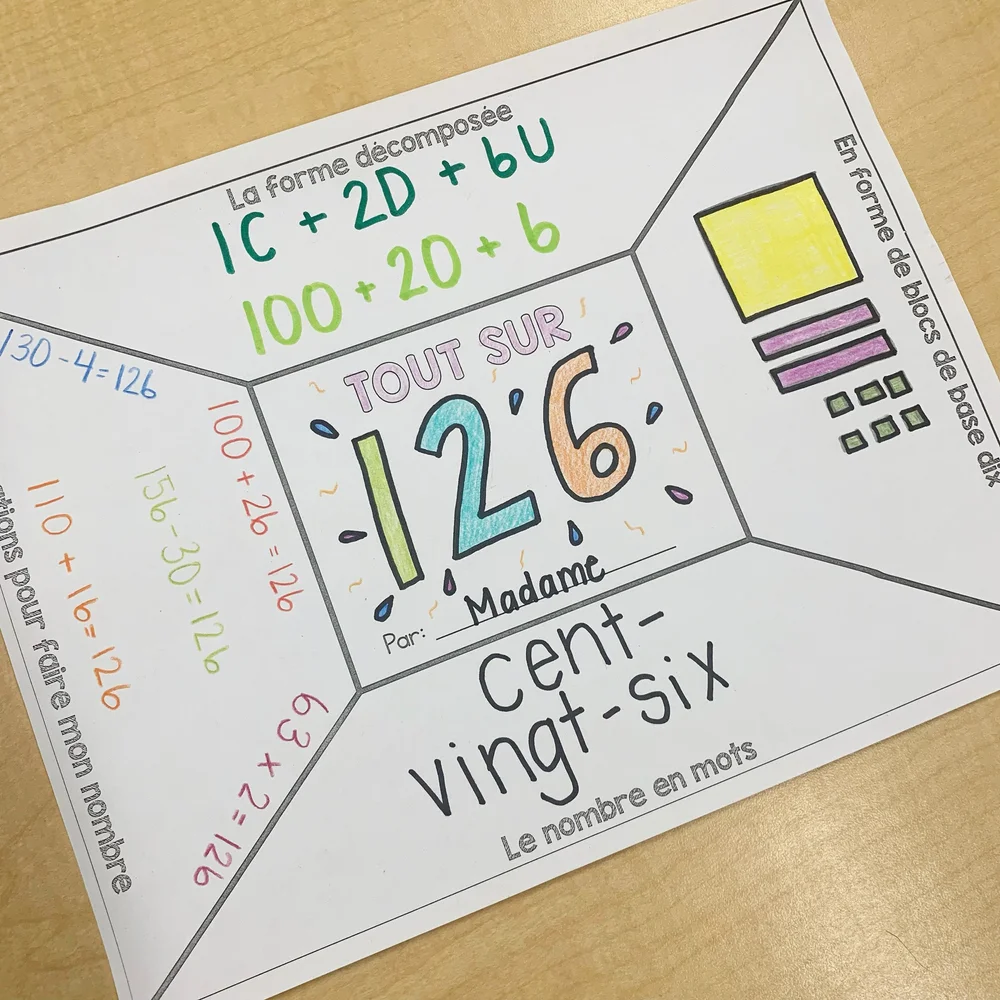 La forme décomposée
1C + 2D + 6U
100 + 20 + 6
En forme de blocs de base dix
TOUT SUR
126
Par: Madame
130 - 4 = 126
100 + 26 = 126
156 - 30 = 126
110 + 16 = 126
63 x 2 = 126
pour faire mon nombre
cent-
vingt-six
Le nombre en mots